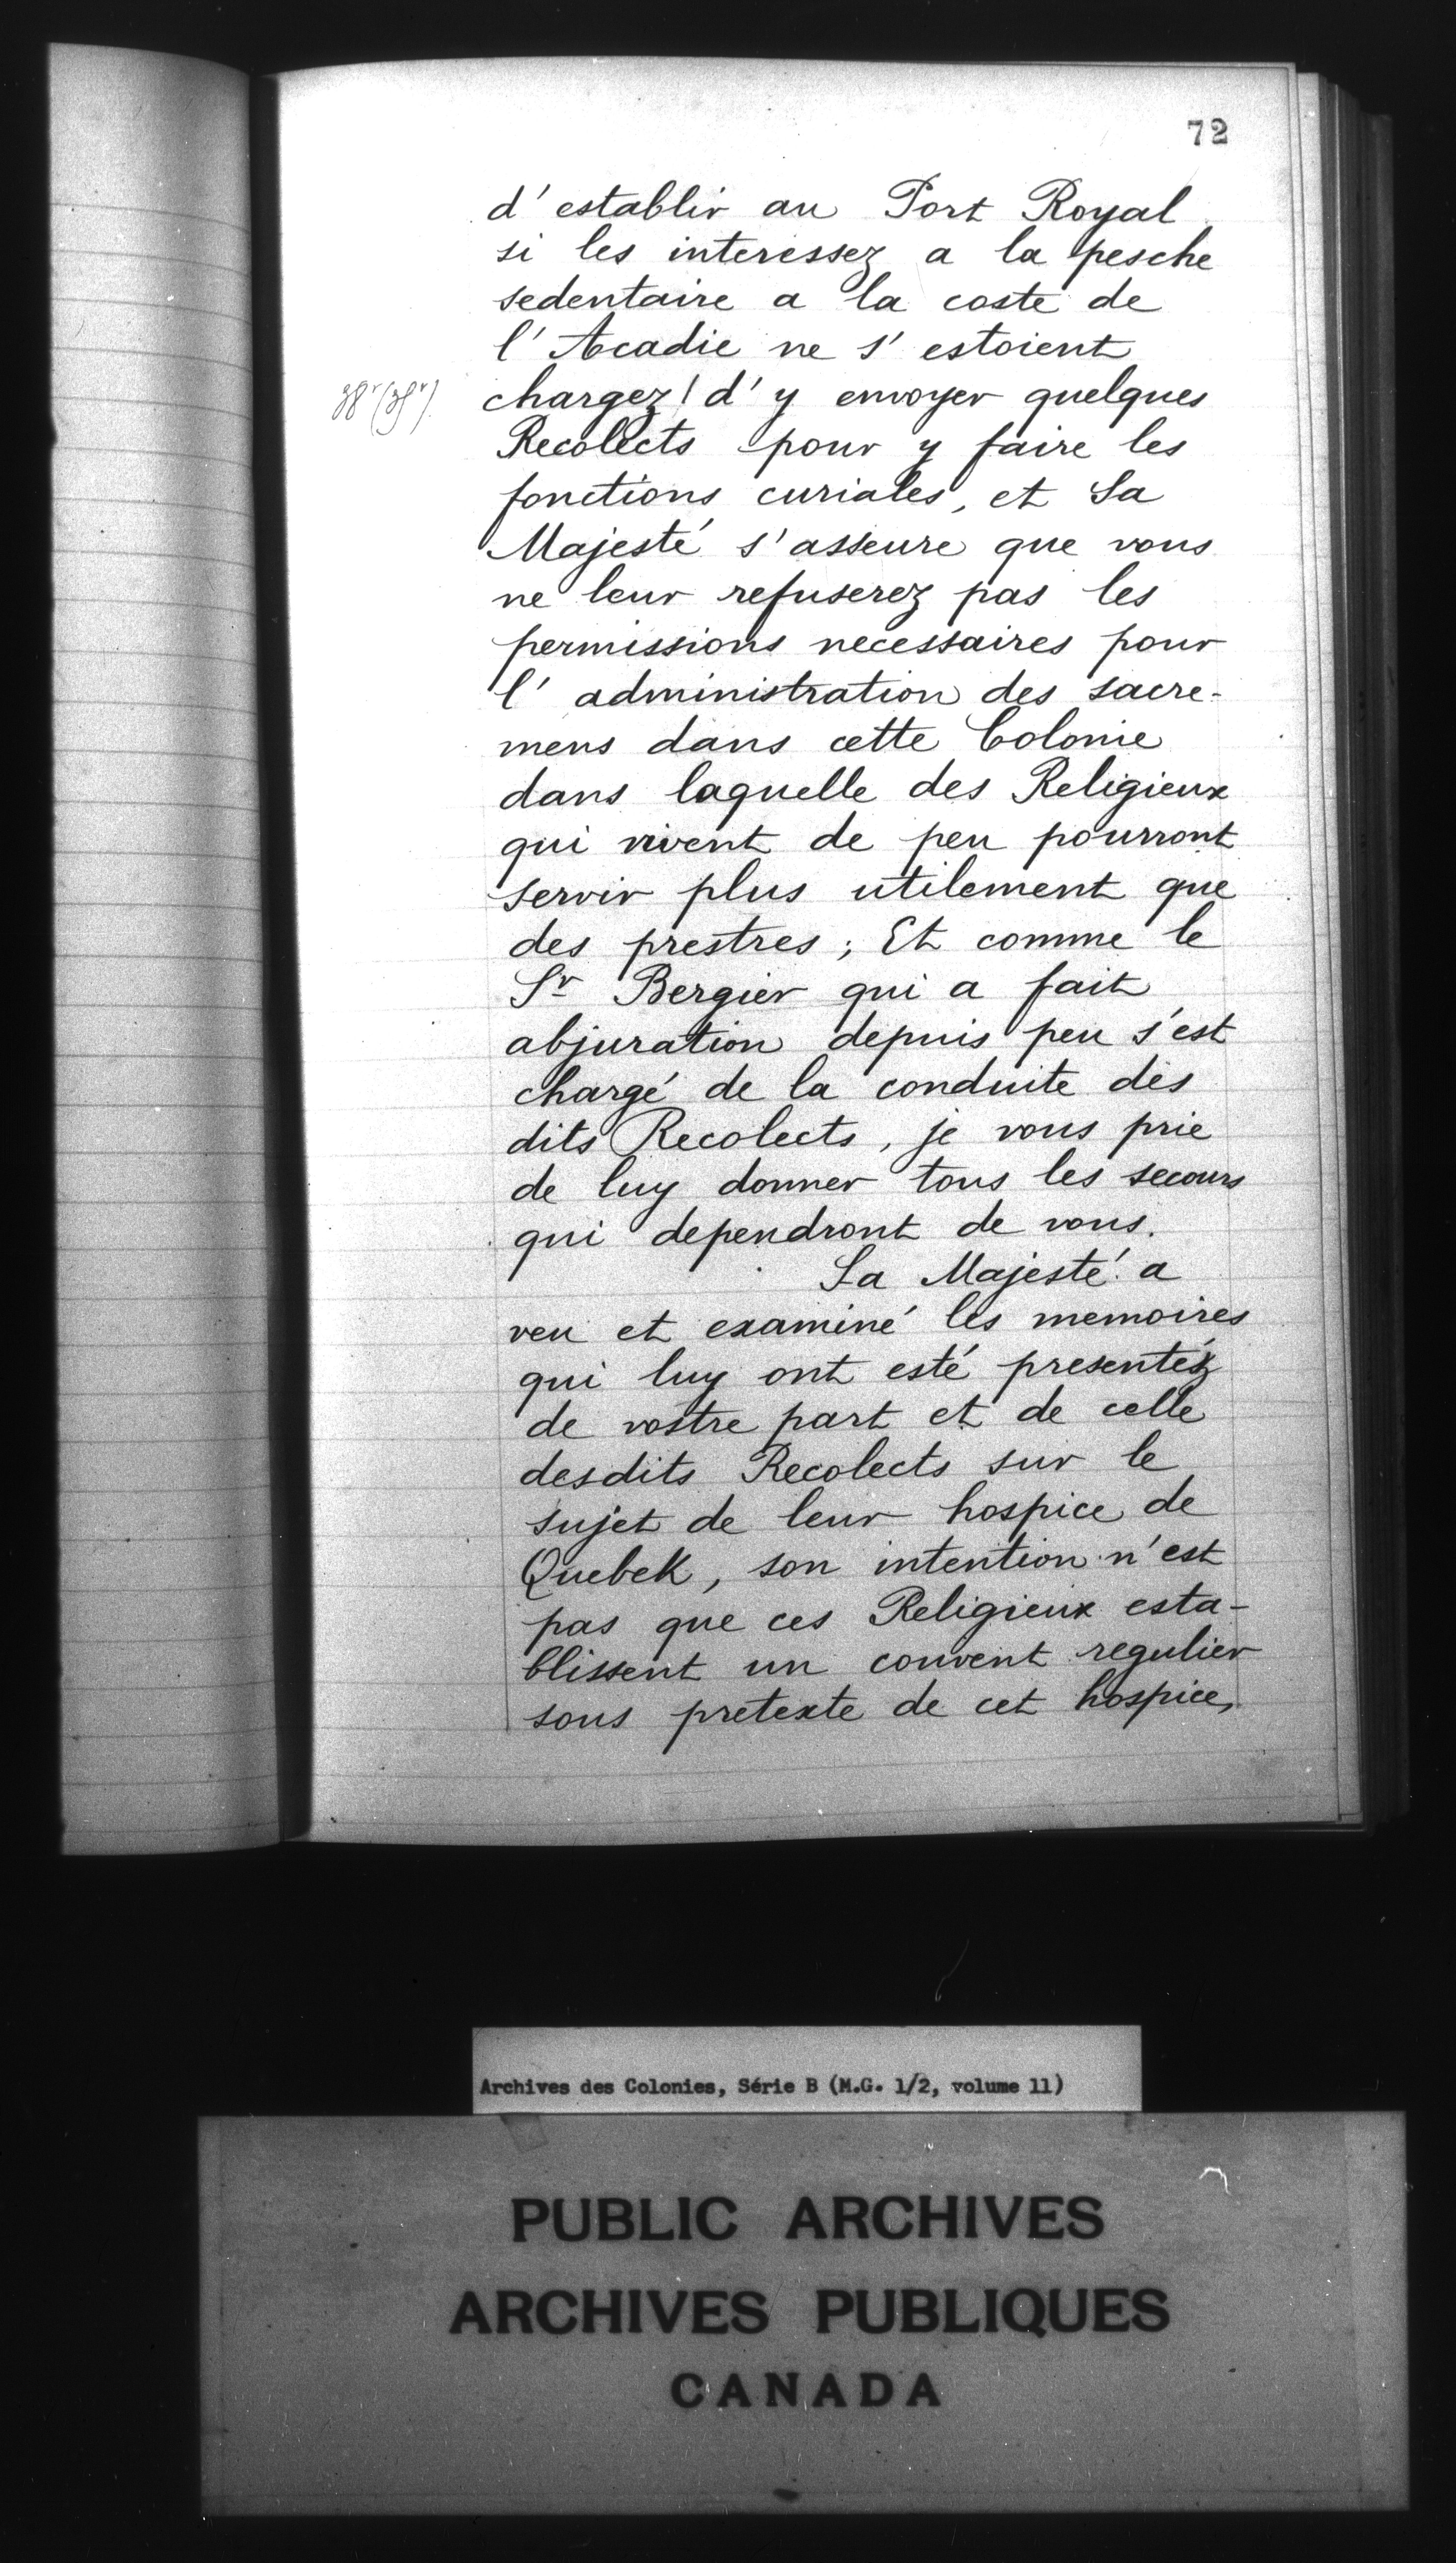 72
d'establir au Port Royal
si les interessez a la pesche
sedentaire a la coste de
l'Acadie ne s'estoient
chargez / d'y envoyer quelques
Recolects pour y faire les
fonctions curiales, et Sa
Majesté s'asseure que vous
ne leur refuserez pas les
permissions necessaires pour
l'administration des sacre-
mens dans cette Colonie
dans laquelle des Religieux
qui vivent de peu pourront
servir plus utilement que
des prestres ; Et comme le
Sr Bergier qui a fait
abjuration depuis peu s'est
chargé de la conduite des
dits Recolects, je vous prie
de luy donner tous les secours
qui dependront de vous.
Sa Majesté a
veu et examiné les memoires
qui luy ont esté presentéz
de vostre part et de celle
desdits Recolects sur le
sujet de leur hospice de
Quebek, son intention n'est
pas que ces Religieux esta-
blissent un convent regulier
sous pretexte de cet hospice,
Archives des Colonies, Série B (M.G. 1/2, volume 11)
PUBLIC ARCHIVES
ARCHIVES PUBLIQUES
CANADA